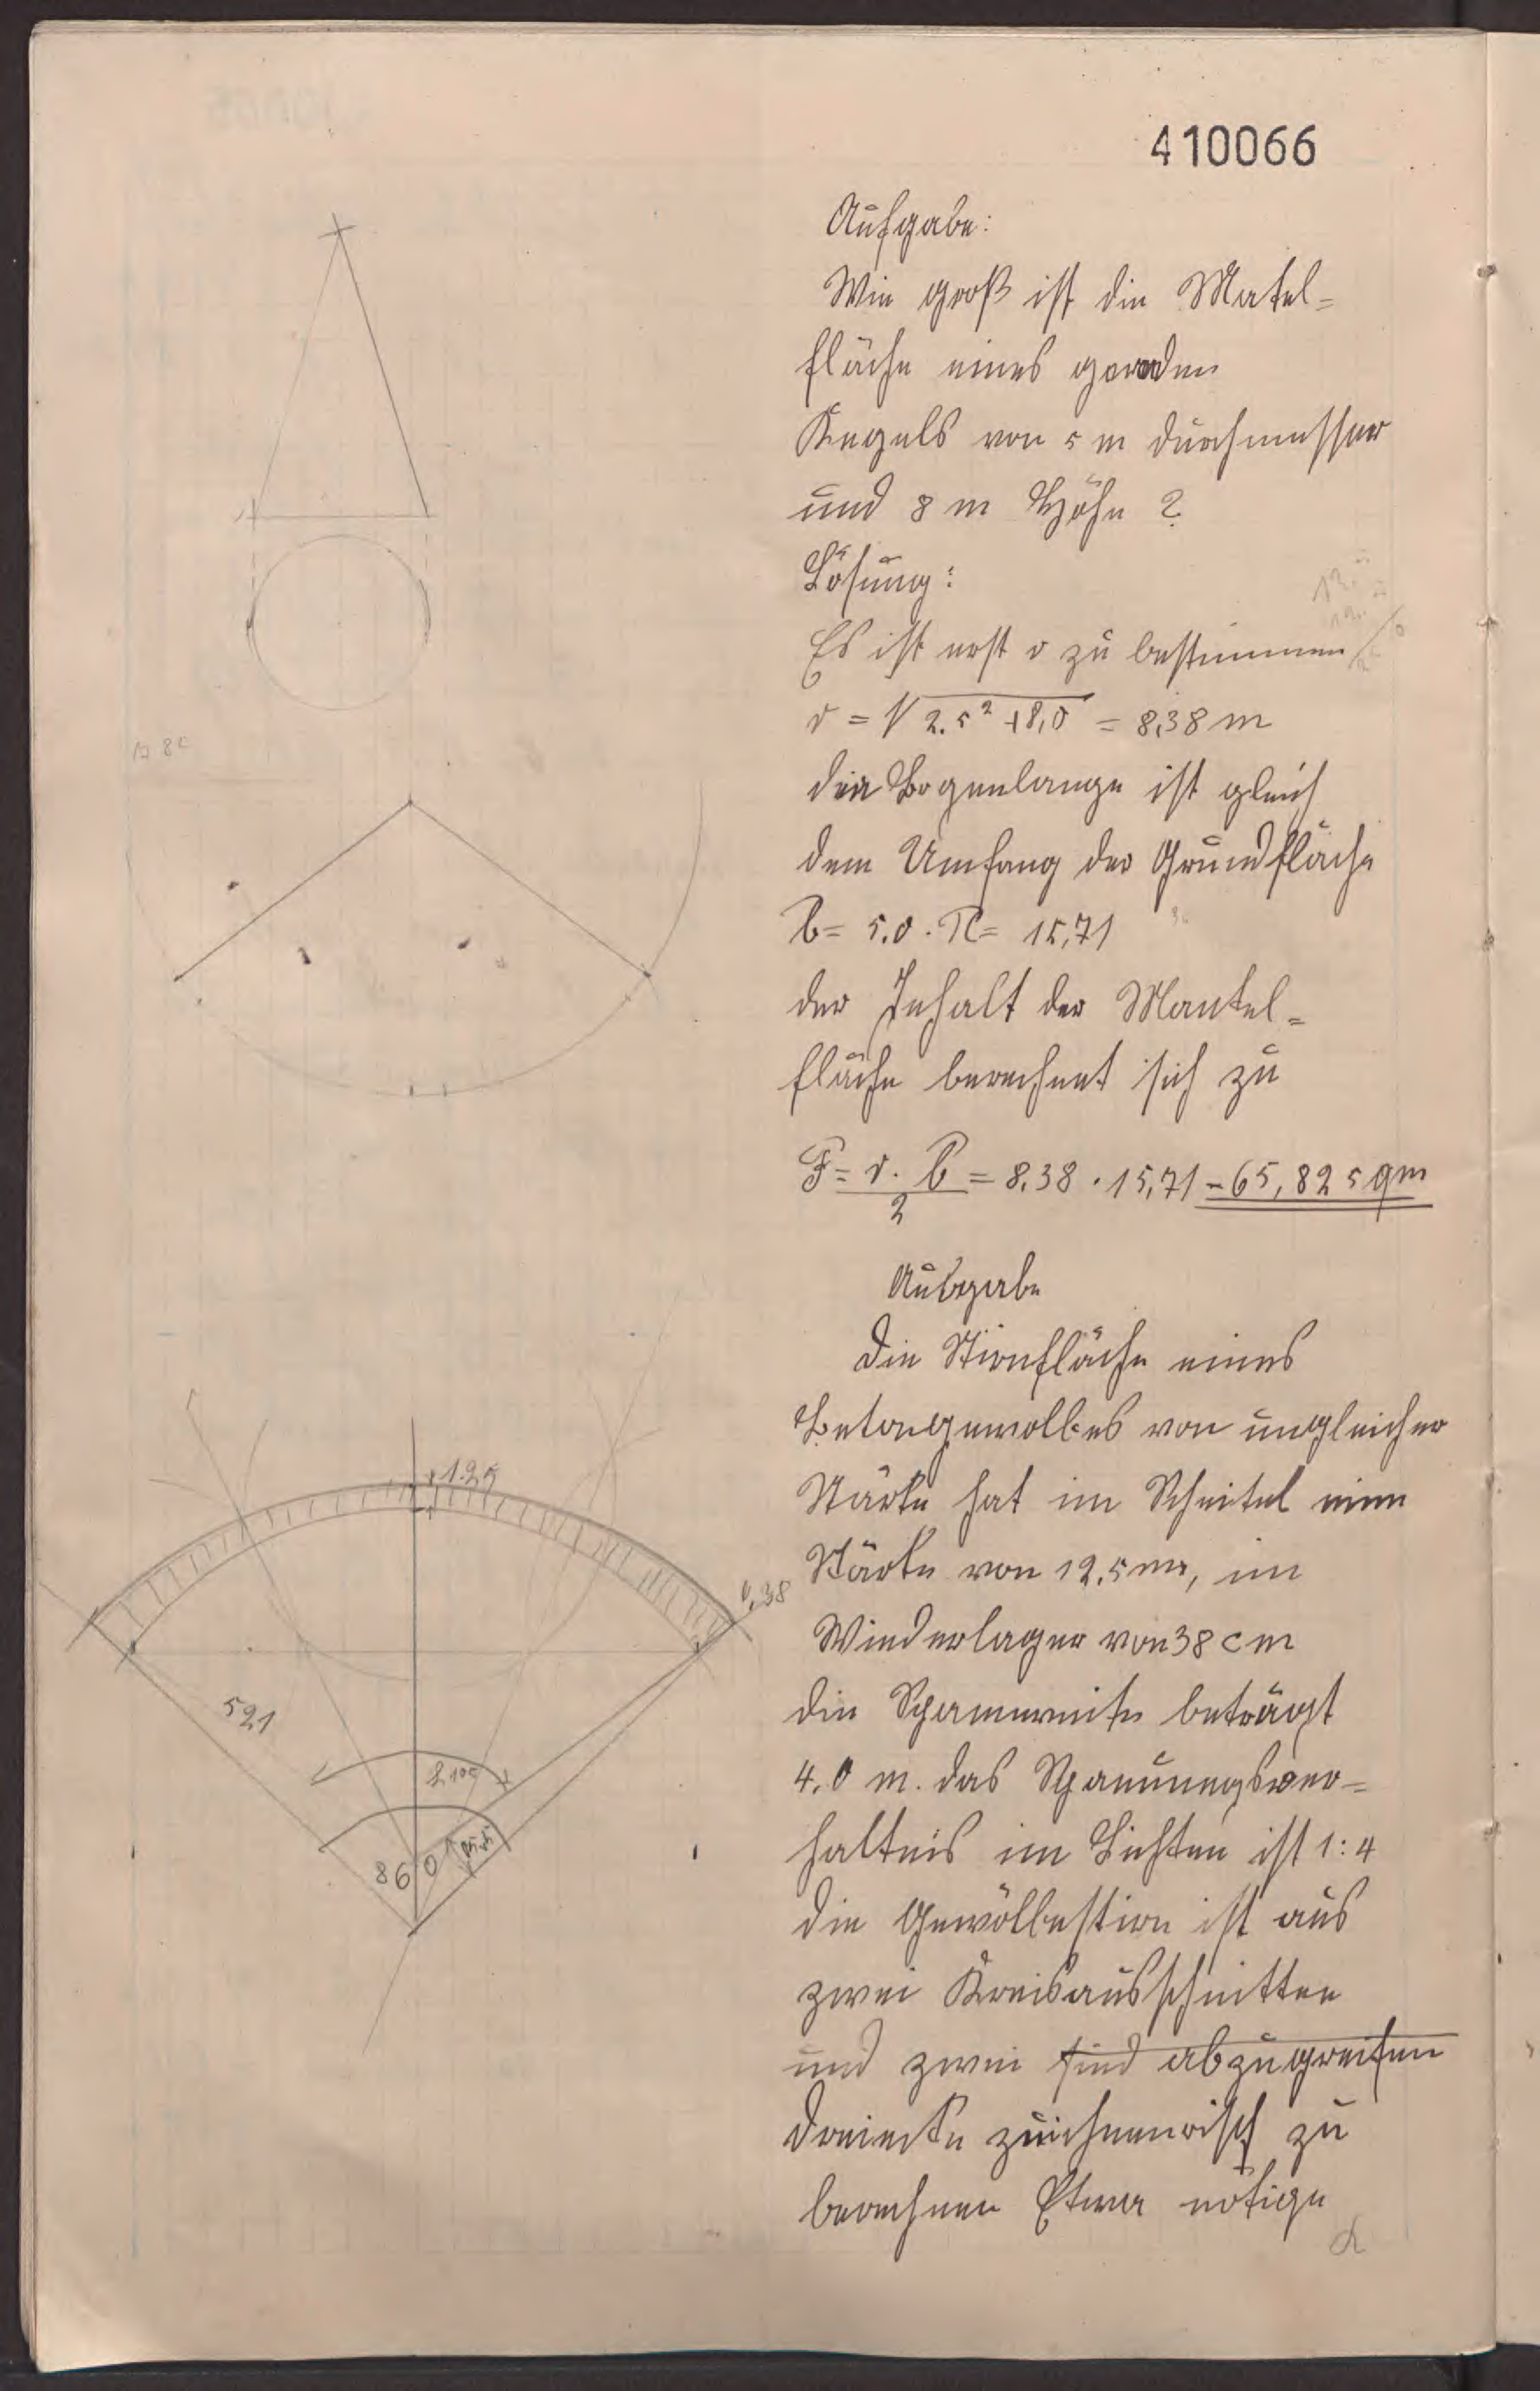 410066
Aufgabe:
Wie groß ist die Matel=
fläche eines geraden
Kegels von 5 m durchmesser
und 8 m Höhe ?
Lösung:
Es ist erst r zu bestimmen
r = √2.5² + 8,0 = 8,38 m
die Bogenlange ist gleich
dem Umfang der Grundfläche
b = 5.0 . π = 15,71
der Inhalt der Mantel=
fläche berechnet sich zu
F = r . b / 2 = 8,38 . 15,71 = 65,825 qm
Ausgabe
die Stirnfläche eines
Betongewolbes von ungleicher
Stärke hat im Scheitel eine
Stärke von 12,5 cm, im
Wiederlager von 38 cm
die Spannweite beträgt
4.0 m. das Spannungsver=
haltnis im Lichten ist 1:4
die Gewölbestirn ist aus
zwei Kreisausschnitten
und zwei sind abzugreifen
dreiecke zeichnerisch zu
berechnen Etwa nötige
1.25
0,38
521
860